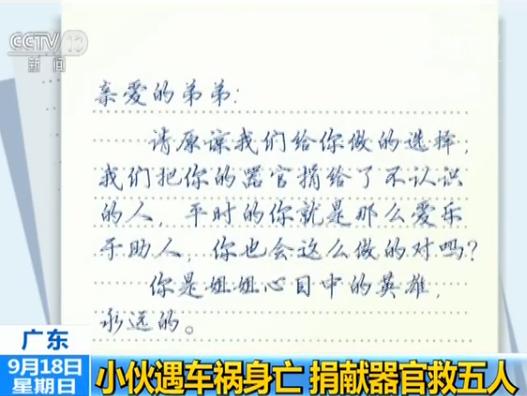 CCTV 13
新闻
亲爱的弟弟:
请原谅我们给你做的选择,
我们把你的器官捐给了不认识
的人，平时的你就是那么爱乐
于助人，你也会这么做的对吗?
你是姐姐心目中的英雄，
永远的。
广东
9月18日
星期日
小伙遇车祸身亡 捐献器官救五人